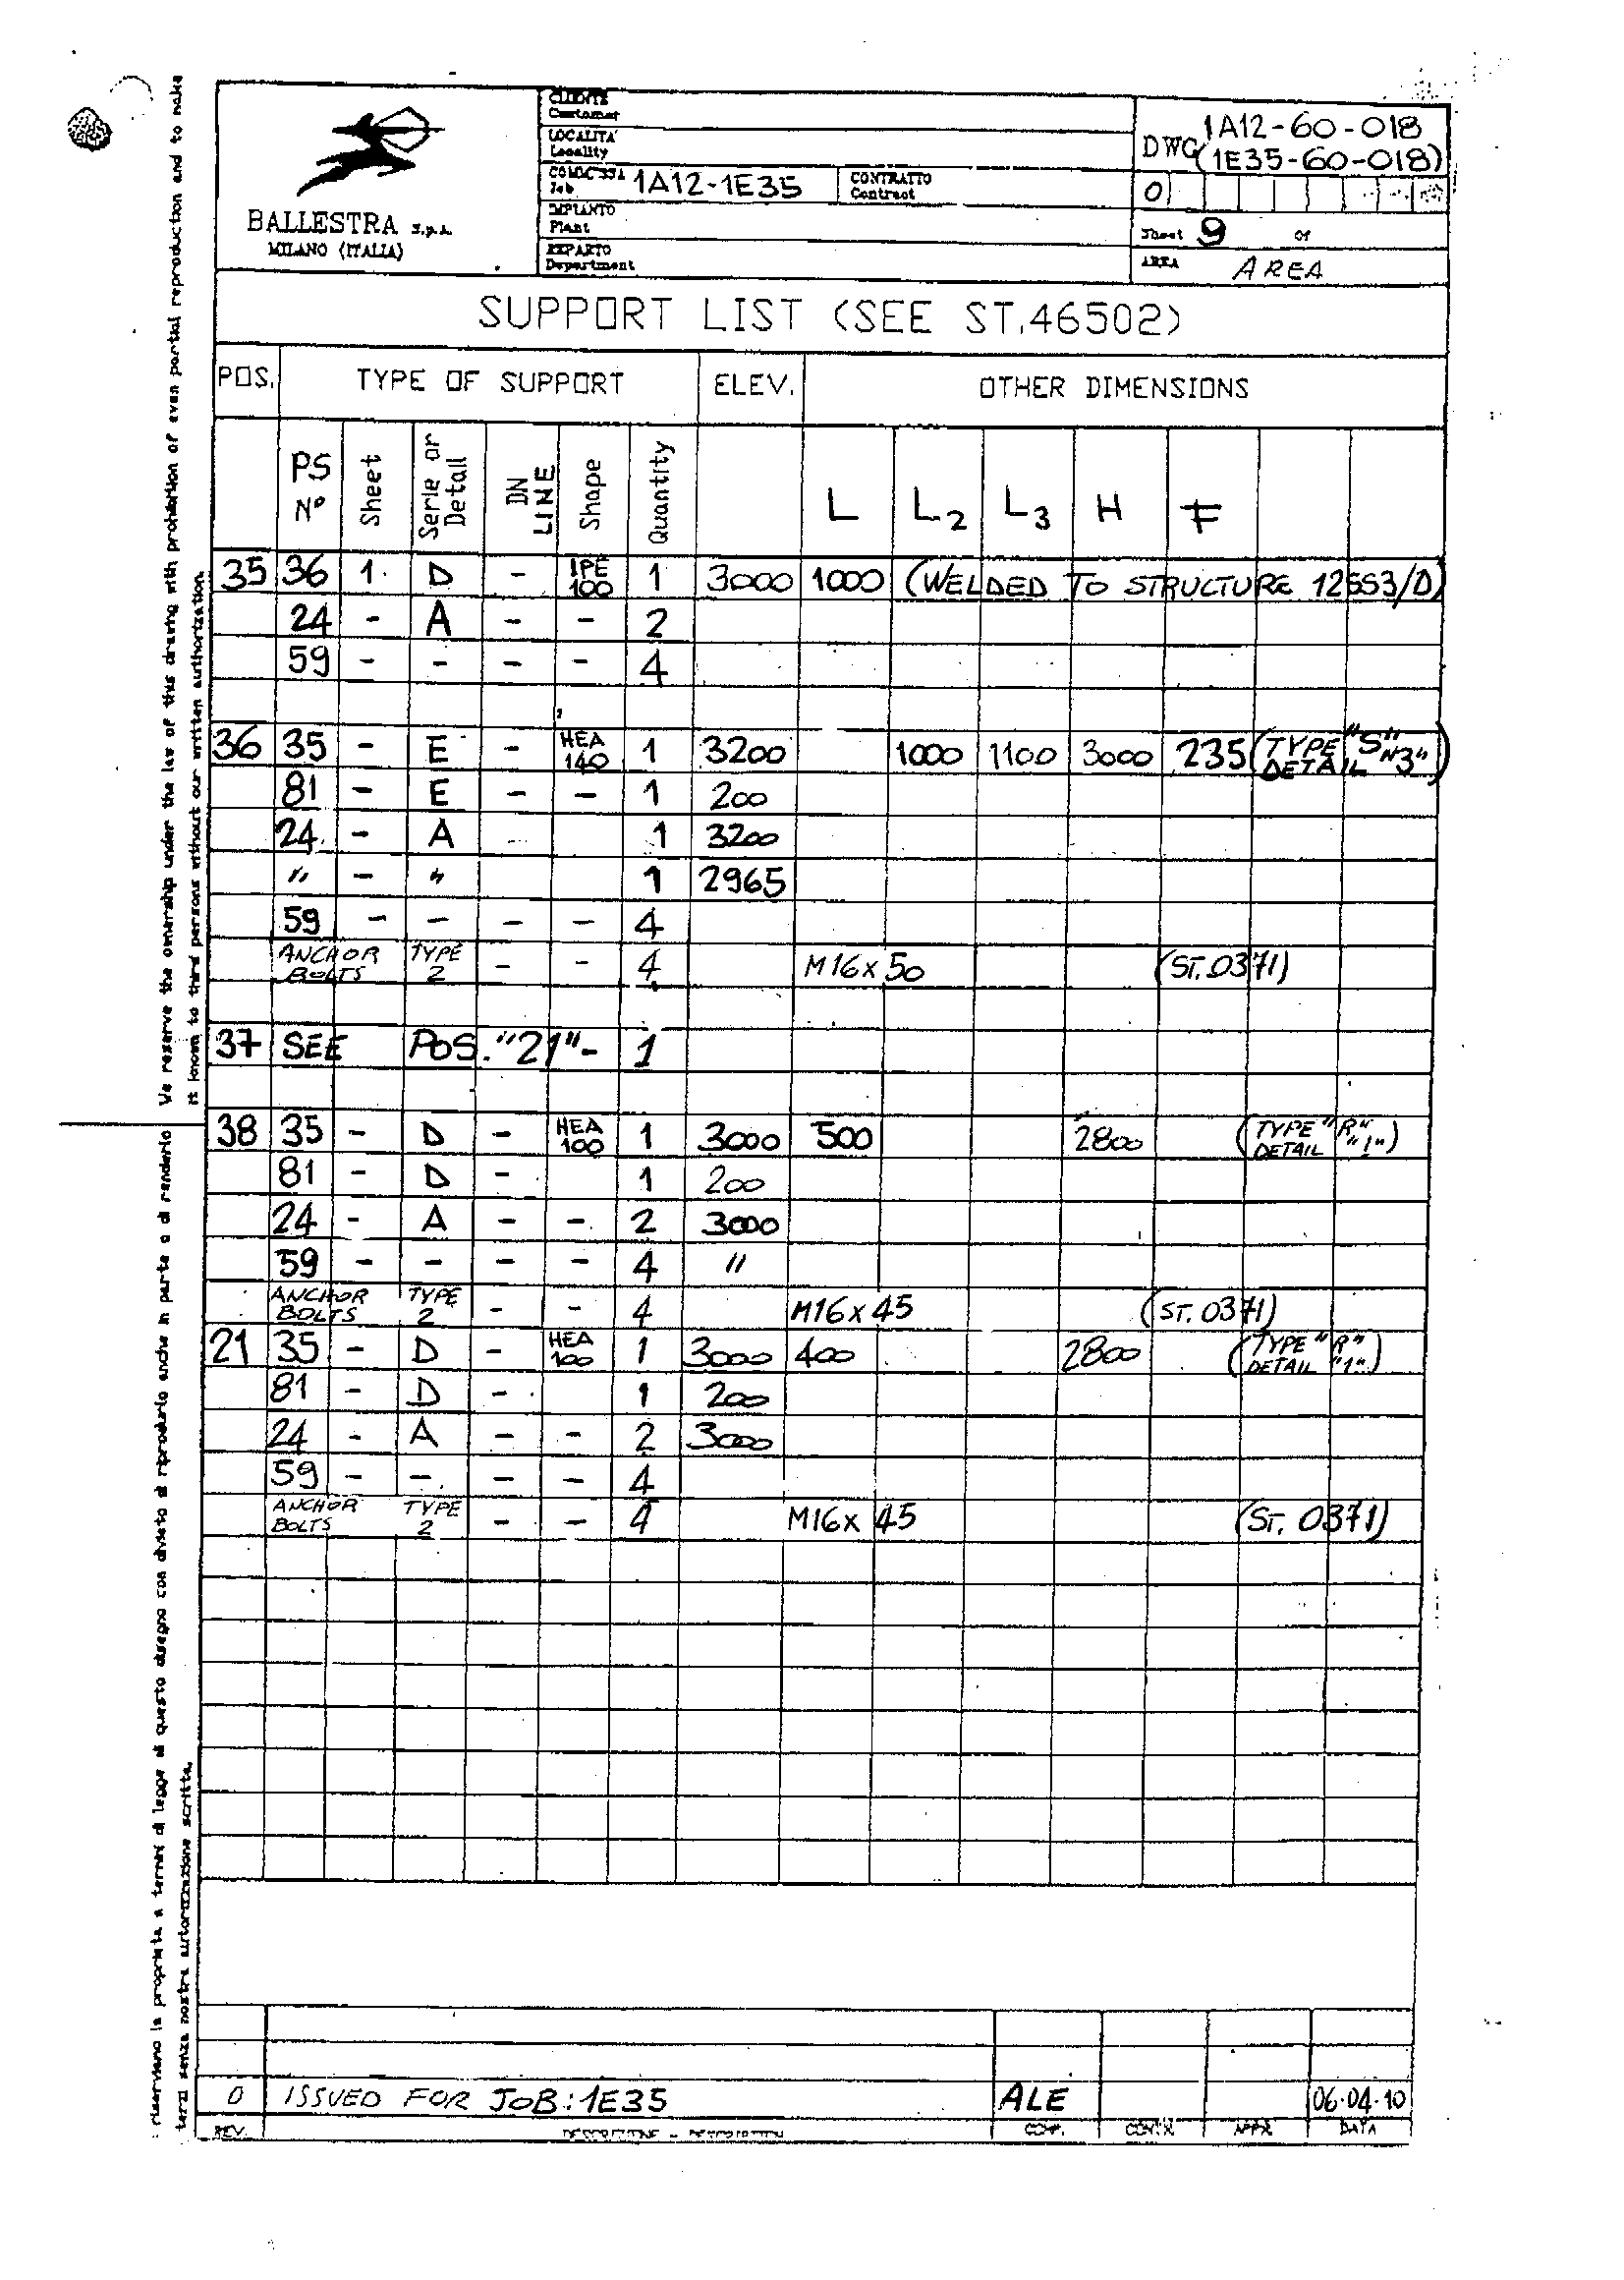 BALLESTRA S.p.A.
MILANO (ITALIA)
CLIENTE
Customer
LOCALITA'
Locality
COMMESSA
Job 1A12-1E35
CONTRATTO
Contract
IMPIANTO
Plant
REPARTO
Department
1A12-60-018
DWG (1E35-60-018)
0
Sheet 9 of
AREA AREA
SUPPORT LIST (SEE ST.46502)
POS. TYPE OF SUPPORT ELEV. OTHER DIMENSIONS
PS N° Sheet Serie or Detail DN LINE Shape Quantity L L2 L3 H F
35 36 1 D - IPE 100 1 3000 1000 (WELDED TO STRUCTURE 12SS3/D)
24 - A - - 2
59 - - - - 4
36 35 - E - HEA 140 1 3200 1000 1100 3000 235 (TYPE "S" DETAIL "3")
81 - E - - 1 200
24 - A 1 3200
" - " 1 2965
59 - - - - 4
ANCHOR BOLTS TYPE 2 - - 4 M16x50 (ST.0371)
37 SEE POS. "21" - 1
38 35 - D - HEA 100 1 3000 500 2800 (TYPE "R" DETAIL "1")
81 - D - 1 200
24 - A - - 2 3000
59 - - - - 4 "
ANCHOR BOLTS TYPE 2 - - 4 M16x45 (ST.0371)
21 35 - D - HEA 100 1 3000 400 2800 (TYPE "R" DETAIL "1")
81 - D - 1 200
24 - A - - 2 3000
59 - - - - 4
ANCHOR BOLTS TYPE 2 - - 4 M16x45 (ST. 0371)
0 ISSUED FOR JOB: 1E35 ALE 06.04.10
REV. DESCRIZIONE - DESCRIPTION COMP. CONTR. APPR. DATA
We reserve the ownership under the law of this drawing with prohibition of even partial reproduction and to make
it known to third persons without our written authorization.
riserviamo la proprietà a termini di legge di questo disegno con divieto di riprodurlo anche in parte o di renderlo
terzi senza nostra autorizzazione scritta.